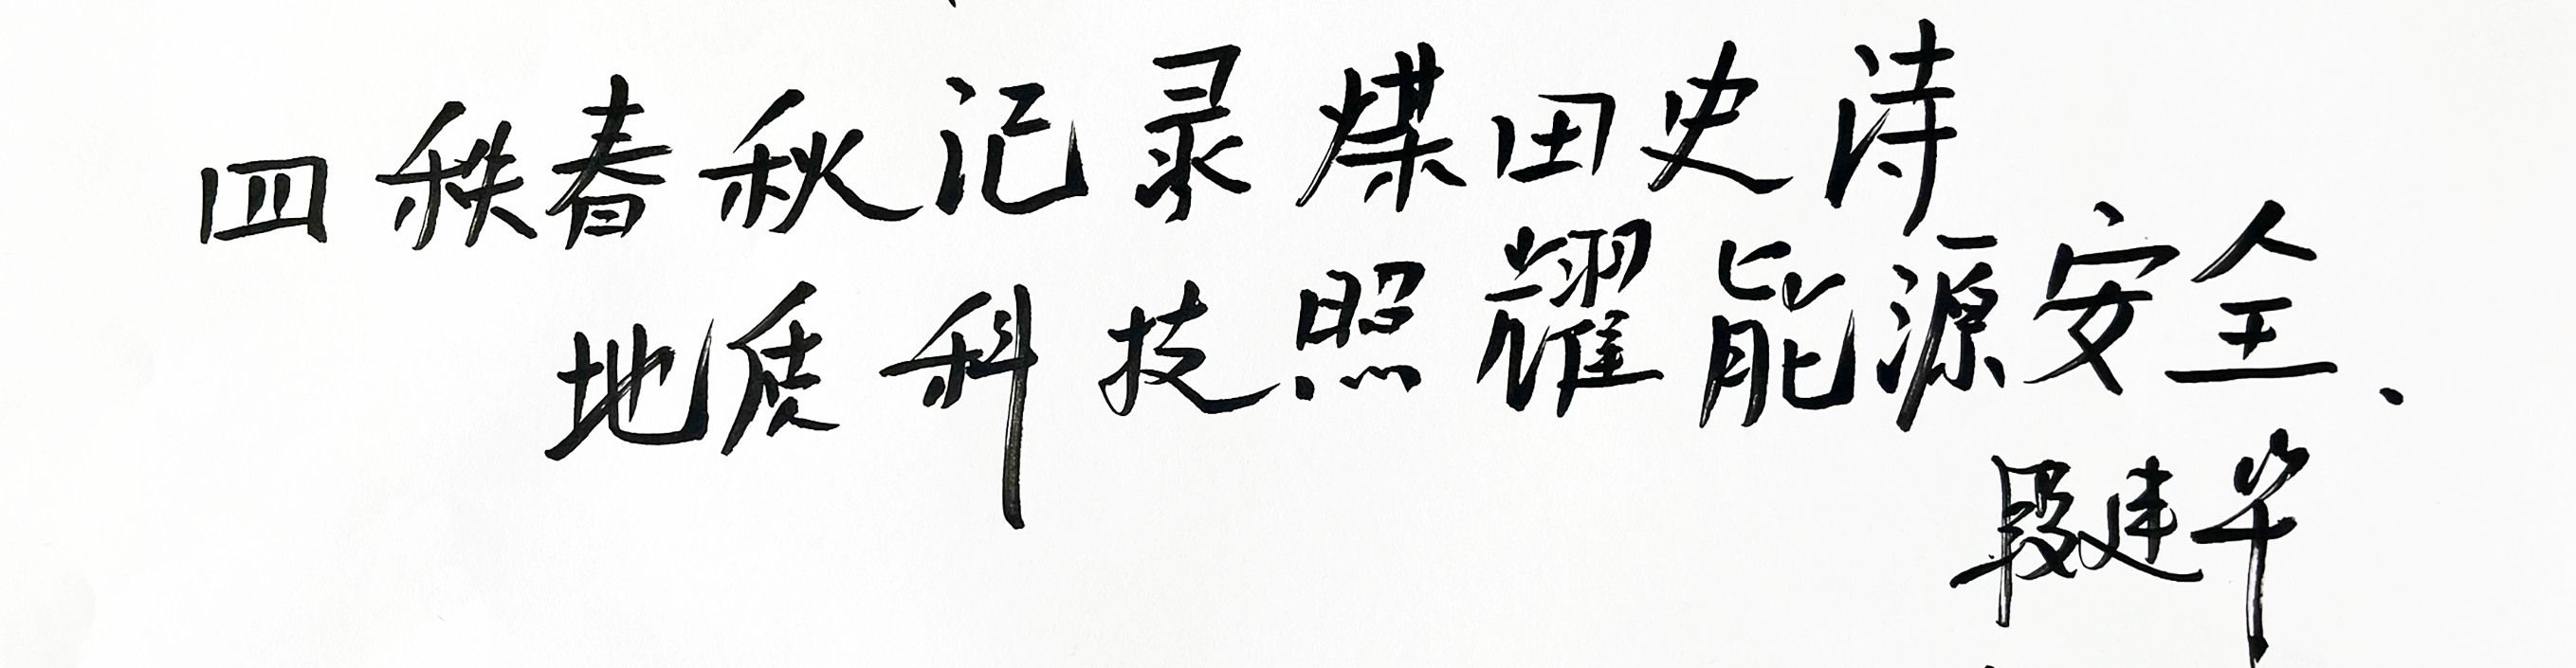 四秩春秋记录煤田史诗
地质科技照耀能源安全.
段建华